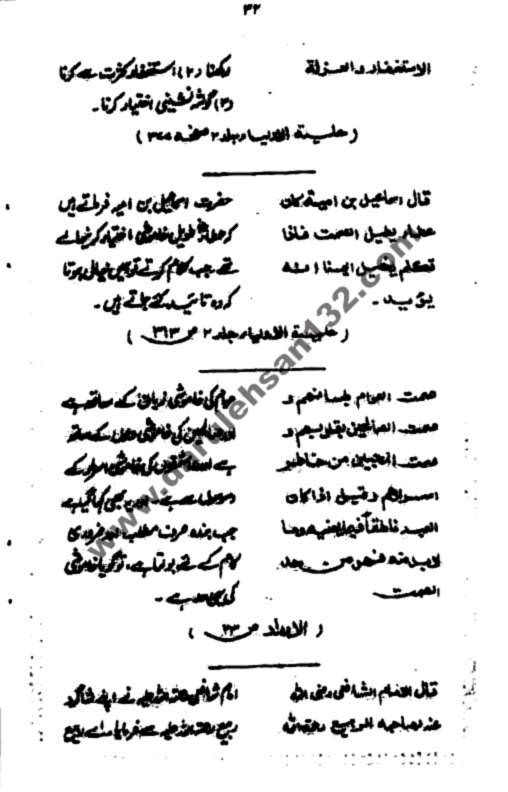 ۳۲
الاستغفار والعزلة
رکھنا (۲) استغفار کثرت سے کرنا
(۳) گوشہ نشینی اختیار کرنا۔
(حلیۃ الاولیاء جلد ۲ صفحہ ۳۷۷)
قال اسماعیل بن امیة کان
عطاء یطیل الصمت فاذا
تکلم یخیل الینا انه
یؤید۔
حضرت اسماعیل بن امیہ فرماتے ہیں
کہ عطاءؒ طویل خاموشی اختیار کرنے والے
تھے جب کلام کرتے تو ہمیں خیال ہوتا
کہ وہ تائید کئے جاتے ہیں۔
(حلیۃ الاولیاء جلد ۲ ص ۳۱۳)
صمت العوام بلسانهم و
صمت العارفین بقلوبهم و
صمت المحبین من خاطر
اسرارهم وقیل اذا کان
العبد ناطقاً فیما یعنیه وما
لابد منه فهو من حد
الصمت
عوام کی خاموشی زبان کے ساتھ ہے
اور عارفین کی خاموشی دلوں کے ساتھ
ہے اور عاشقوں کی خاموشی اسرار کے
وسواس سے ہے۔ اور یہ بھی کہا گیا ہے
جب بندہ صرف مطلب اور ضروری
کلام کے لئے بولتا ہے، تو گویا خاموشی
کی ہی حد ہے۔
(الامداد ص ۲۳)
قال الامام الشافعی رضی الله
عنه لصاحبه الربیع رحمة الله
امام شافعی رحمۃ اللہ علیہ نے اپنے شاگرد
ربیع رحمۃ اللہ علیہ سے فرمایا، اے ربیع
www.darulehsan132.com